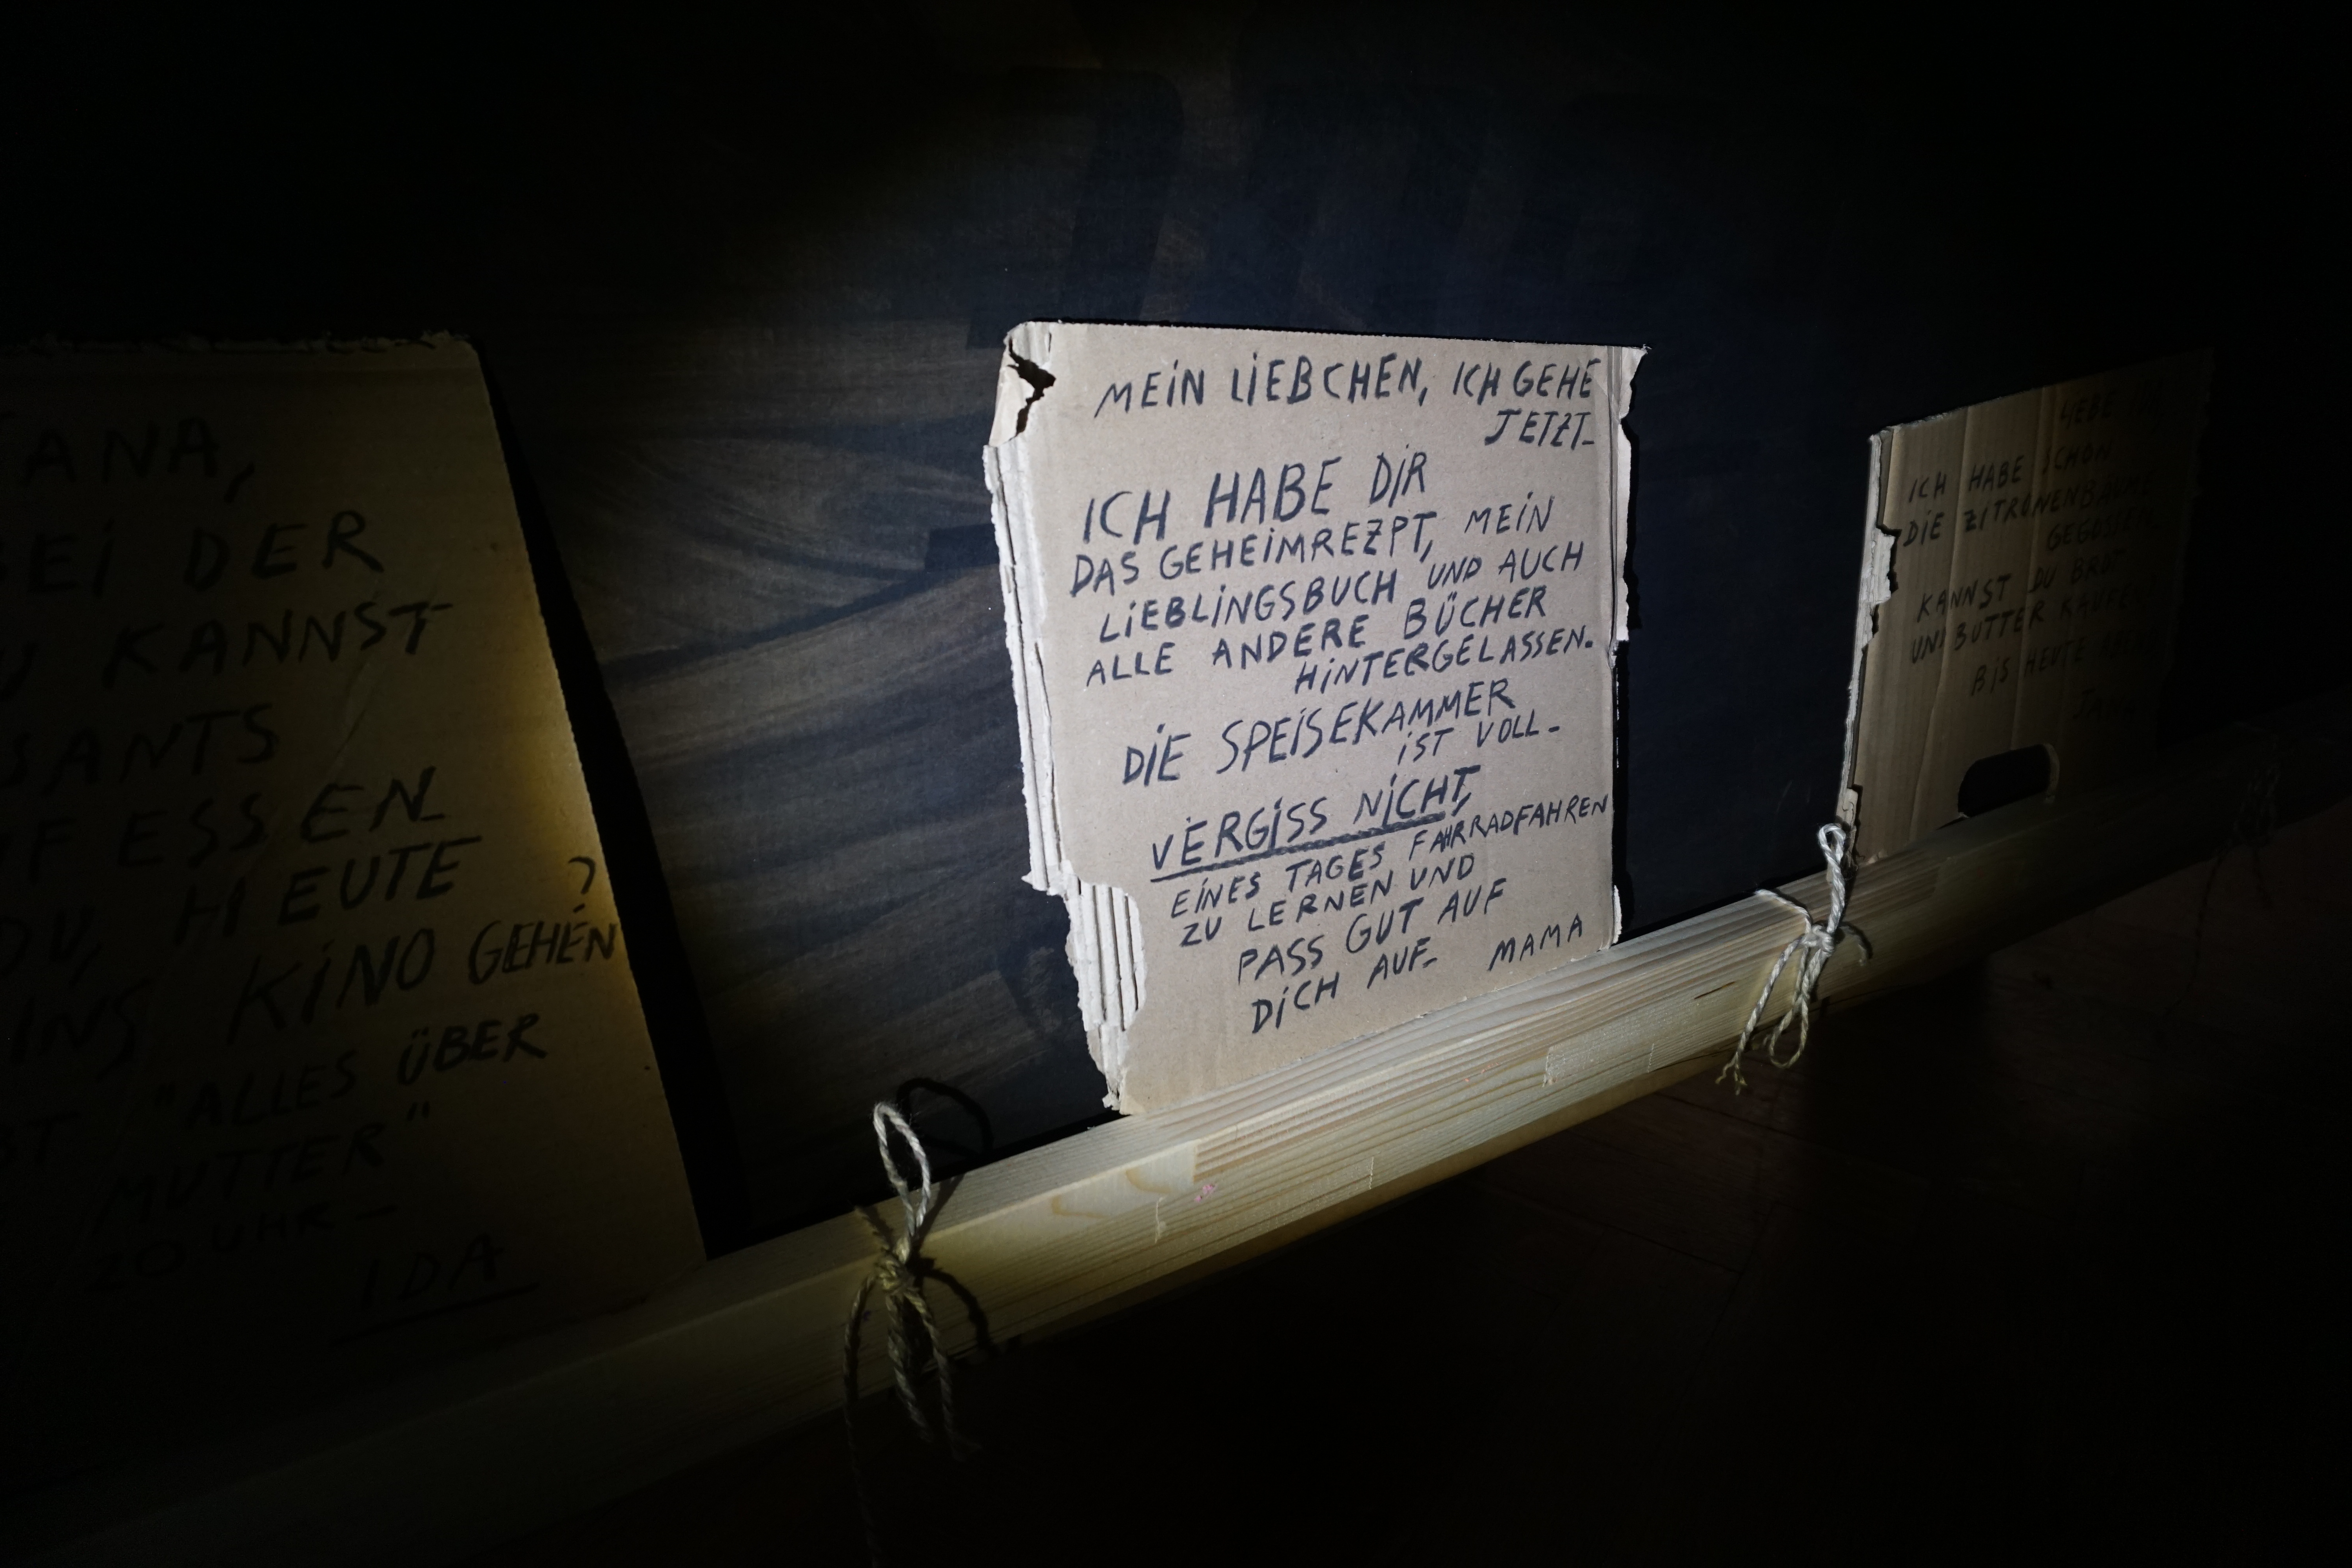 ANA,
BEI DER
KANNST
SANTS
ESSEN
DU, HEUTE
INS KINO GEHEN?
"ALLES ÜBER
MUTTER"
20 UHR -
IDA
MEIN LIEBCHEN, ICH GEHE
JETZT-
ICH HABE DIR
DAS GEHEIMREZPT, MEIN
LIEBLINGSBUCH UND AUCH
ALLE ANDERE BÜCHER
HINTERGELASSEN.
DIE SPEISEKAMMER
IST VOLL-
VERGISS NICHT,
EINES TAGES FAHRRADFAHREN
ZU LERNEN UND
PASS GUT AUF
DICH AUF- MAMA
LIEBE
ICH HABE SCHON
DIE ZITRONENBÄUME
GEGOSSEN
KANNST DU BROT
UND BUTTER KAUFEN
BIS HEUTE